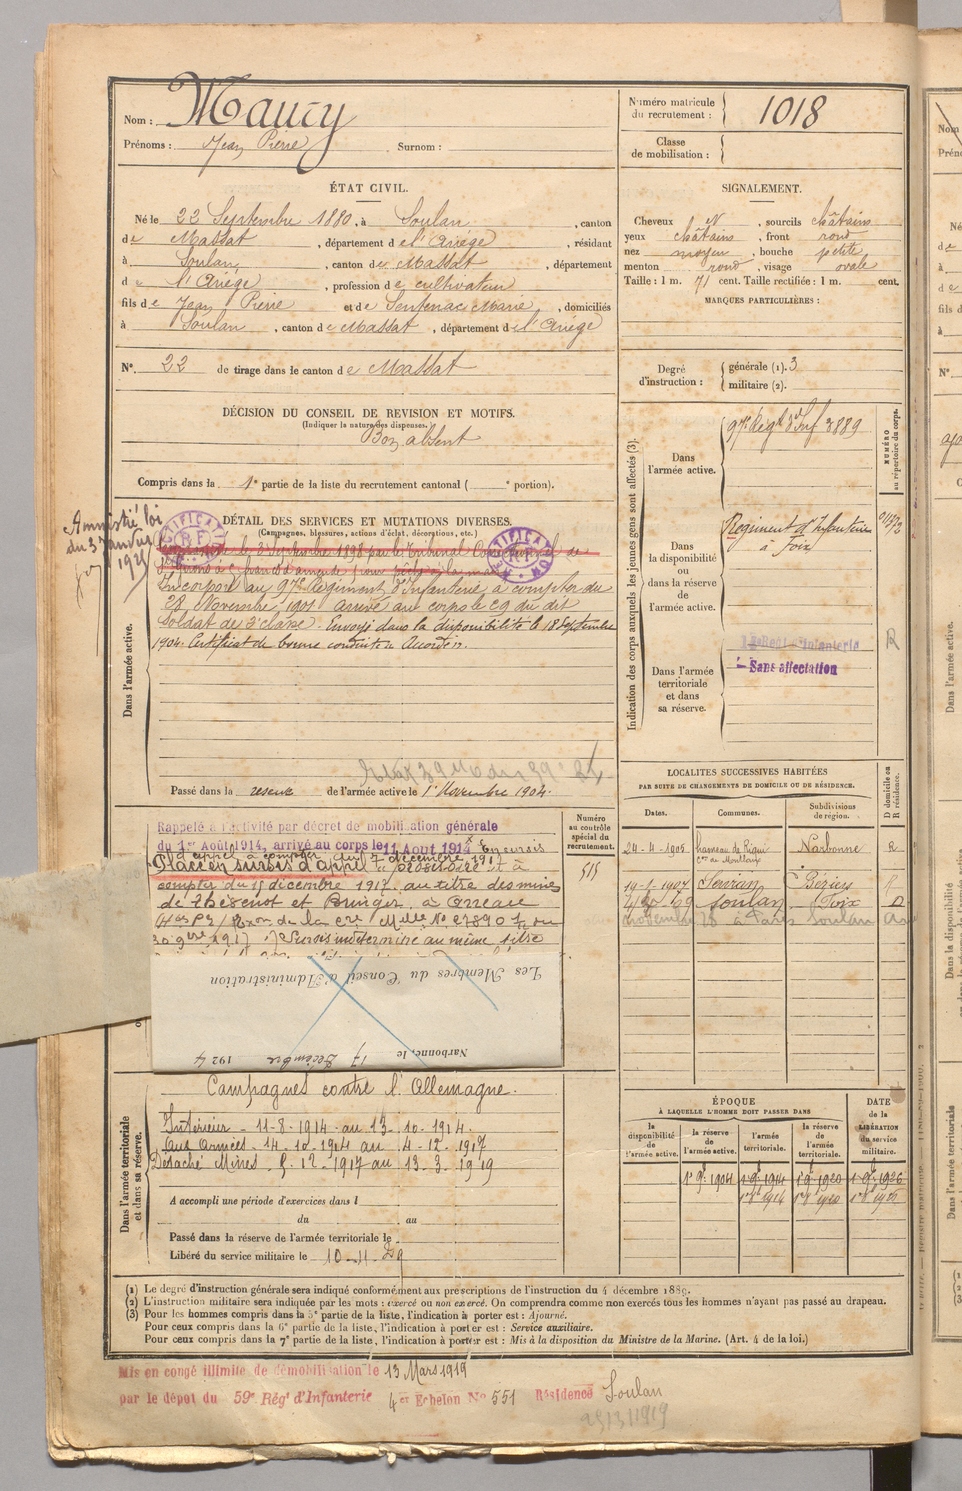 Nom : Maury
Prénoms : Jean Pierre Surnom :
Numéro matricule du recrutement : 1018
Classe de mobilisation :
ÉTAT CIVIL.
Né le 22 Septembre 1880, à Soulan, canton
de Massat, département de l'Ariège, résidant
à Soulan, canton de Massat, département
de l'Ariège, profession de cultivateur
fils de Jean Pierre et de Sentenac Marie, domiciliés
à Soulan, canton de Massat, département de l'Ariège
N° 22 de tirage dans le canton de Massat
SIGNALEMENT.
Cheveux N, sourcils châtains
yeux châtains, front rond
nez moyen, bouche petite
menton rond, visage ovale
Taille : 1 m. 71 cent. Taille rectifiée : 1 m. cent.
MARQUES PARTICULIÈRES :
Degré d'instruction : générale (1). 3
militaire (2).
DÉCISION DU CONSEIL DE REVISION ET MOTIFS.
(Indiquer la nature des dispenses.)
Bon absent
Compris dans la 1e partie de la liste du recrutement cantonal ( e portion).
DÉTAIL DES SERVICES ET MUTATIONS DIVERSES.
(Campagnes, blessures, actions d'éclat, décorations, etc.)
Amnistié loi
du 3 Janvier
1925
RECTIFICATION
R F
le 2 Septembre 1898 par le Tribunal Correctionnel de
Incorporé au 97e Régiment d'Infanterie à compter du
28 Novembre 1901 arrivé au corps le 29 du dit
soldat de 2e classe. Envoyé dans la disponibilité le 18 Septembre
1904. Certificat de bonne conduite Accordé.
Dans l'armée active.
Passé dans la réserve de l'armée active le 1er Novembre 1904.
Indication des corps auxquels les jeunes gens sont affectés (3).
NUMÉRO au répertoire du corps.
Dans l'armée active.
97e Régt d'Inf 8889
Dans la disponibilité ou dans la réserve de l'armée active.
Régiment d'Infanterie
à Foix
Dans l'armée territoriale et dans sa réserve.
Régt d'Infanterie
Sans affectation
R
LOCALITÉS SUCCESSIVES HABITÉES
PAR SUITE DE CHANGEMENTS DE DOMICILE OU DE RÉSIDENCE.
D domicile ou R résidence.
Dates. Communes. Subdivisions de région.
24-4-1905 hameau de Narbonne R
19-1-1907 Servian Béziers R
Soulan Foix D
à Paris Soulan
Rappelé à l'activité par décret de mobilisation générale
du 1er Août 1914, arrivé au corps le 11 Août 1914 En sursis
d'appel à compter du 7 décembre 1917
Placé en sursis d'appel
compter du 15 décembre 1917 au titre des mines
de et à Arreau
Sursis indéterminé au même titre
Numéro au contrôle spécial du recrutement.
515
Les Membres du Conseil d'Administration
Narbonne, le 17 Décembre 1924
Dans l'armée territoriale et dans sa réserve.
Campagnes contre l'Allemagne.
Intérieur - 11-8-1914 au 13-10-1914.
Aux Armées - 14-10-1914 au 4-12-1917
Détaché Mines - 5-12-1917 au 13-3-1919
A accompli une période d'exercices dans l
du au
Passé dans la réserve de l'armée territoriale le
Libéré du service militaire le 10-11-29
ÉPOQUE
À LAQUELLE L'HOMME DOIT PASSER DANS
DATE de la LIBÉRATION du service militaire.
la disponibilité de l'armée active. la réserve de l'armée active. l'armée territoriale. la réserve de l'armée territoriale.
1er 9e 1904 1er 9e 1914 1er 9e 1920 1er 9e 1926
(1) Le degré d'instruction générale sera indiqué conformément aux prescriptions de l'instruction du 4 décembre 1889.
(2) L'instruction militaire sera indiquée par les mots : exercé ou non exercé. On comprendra comme non exercés tous les hommes n'ayant pas passé au drapeau.
(3) Pour les hommes compris dans la 5e partie de la liste, l'indication à porter est : Ajourné.
Pour ceux compris dans la 6e partie de la liste, l'indication à porter est : Service auxiliaire.
Pour ceux compris dans la 7e partie de la liste, l'indication à porter est : Mis à la disposition du Ministre de la Marine. (Art. 4 de la loi.)
Mis en congé illimité de démobilisation le 13 Mars 1919
par le dépot du 59e Régt d'Infanterie 4er Echelon N° 551 Résidence Soulan